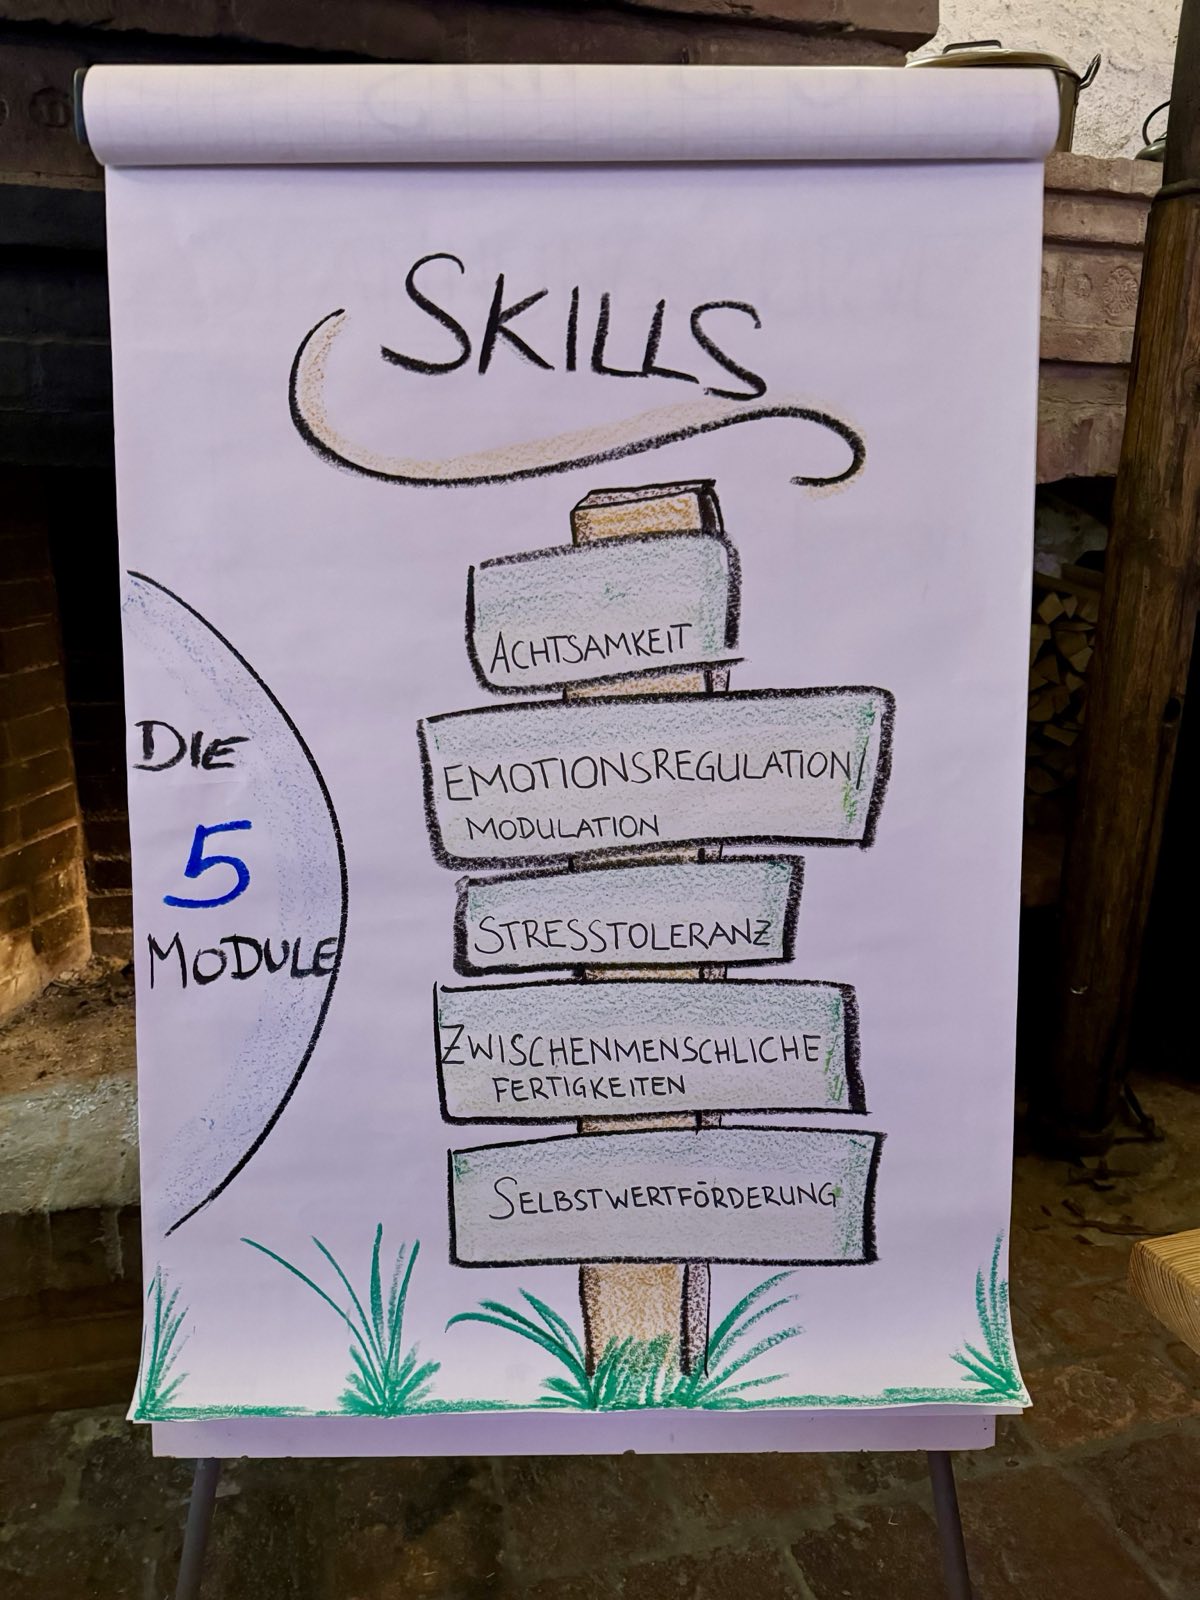 SKILLS
DIE
5
MODULE
ACHTSAMKEIT
EMOTIONSREGULATION/
MODULATION
STRESSTOLERANZ
ZWISCHENMENSCHLICHE
FERTIGKEITEN
SELBSTWERTFÖRDERUNG